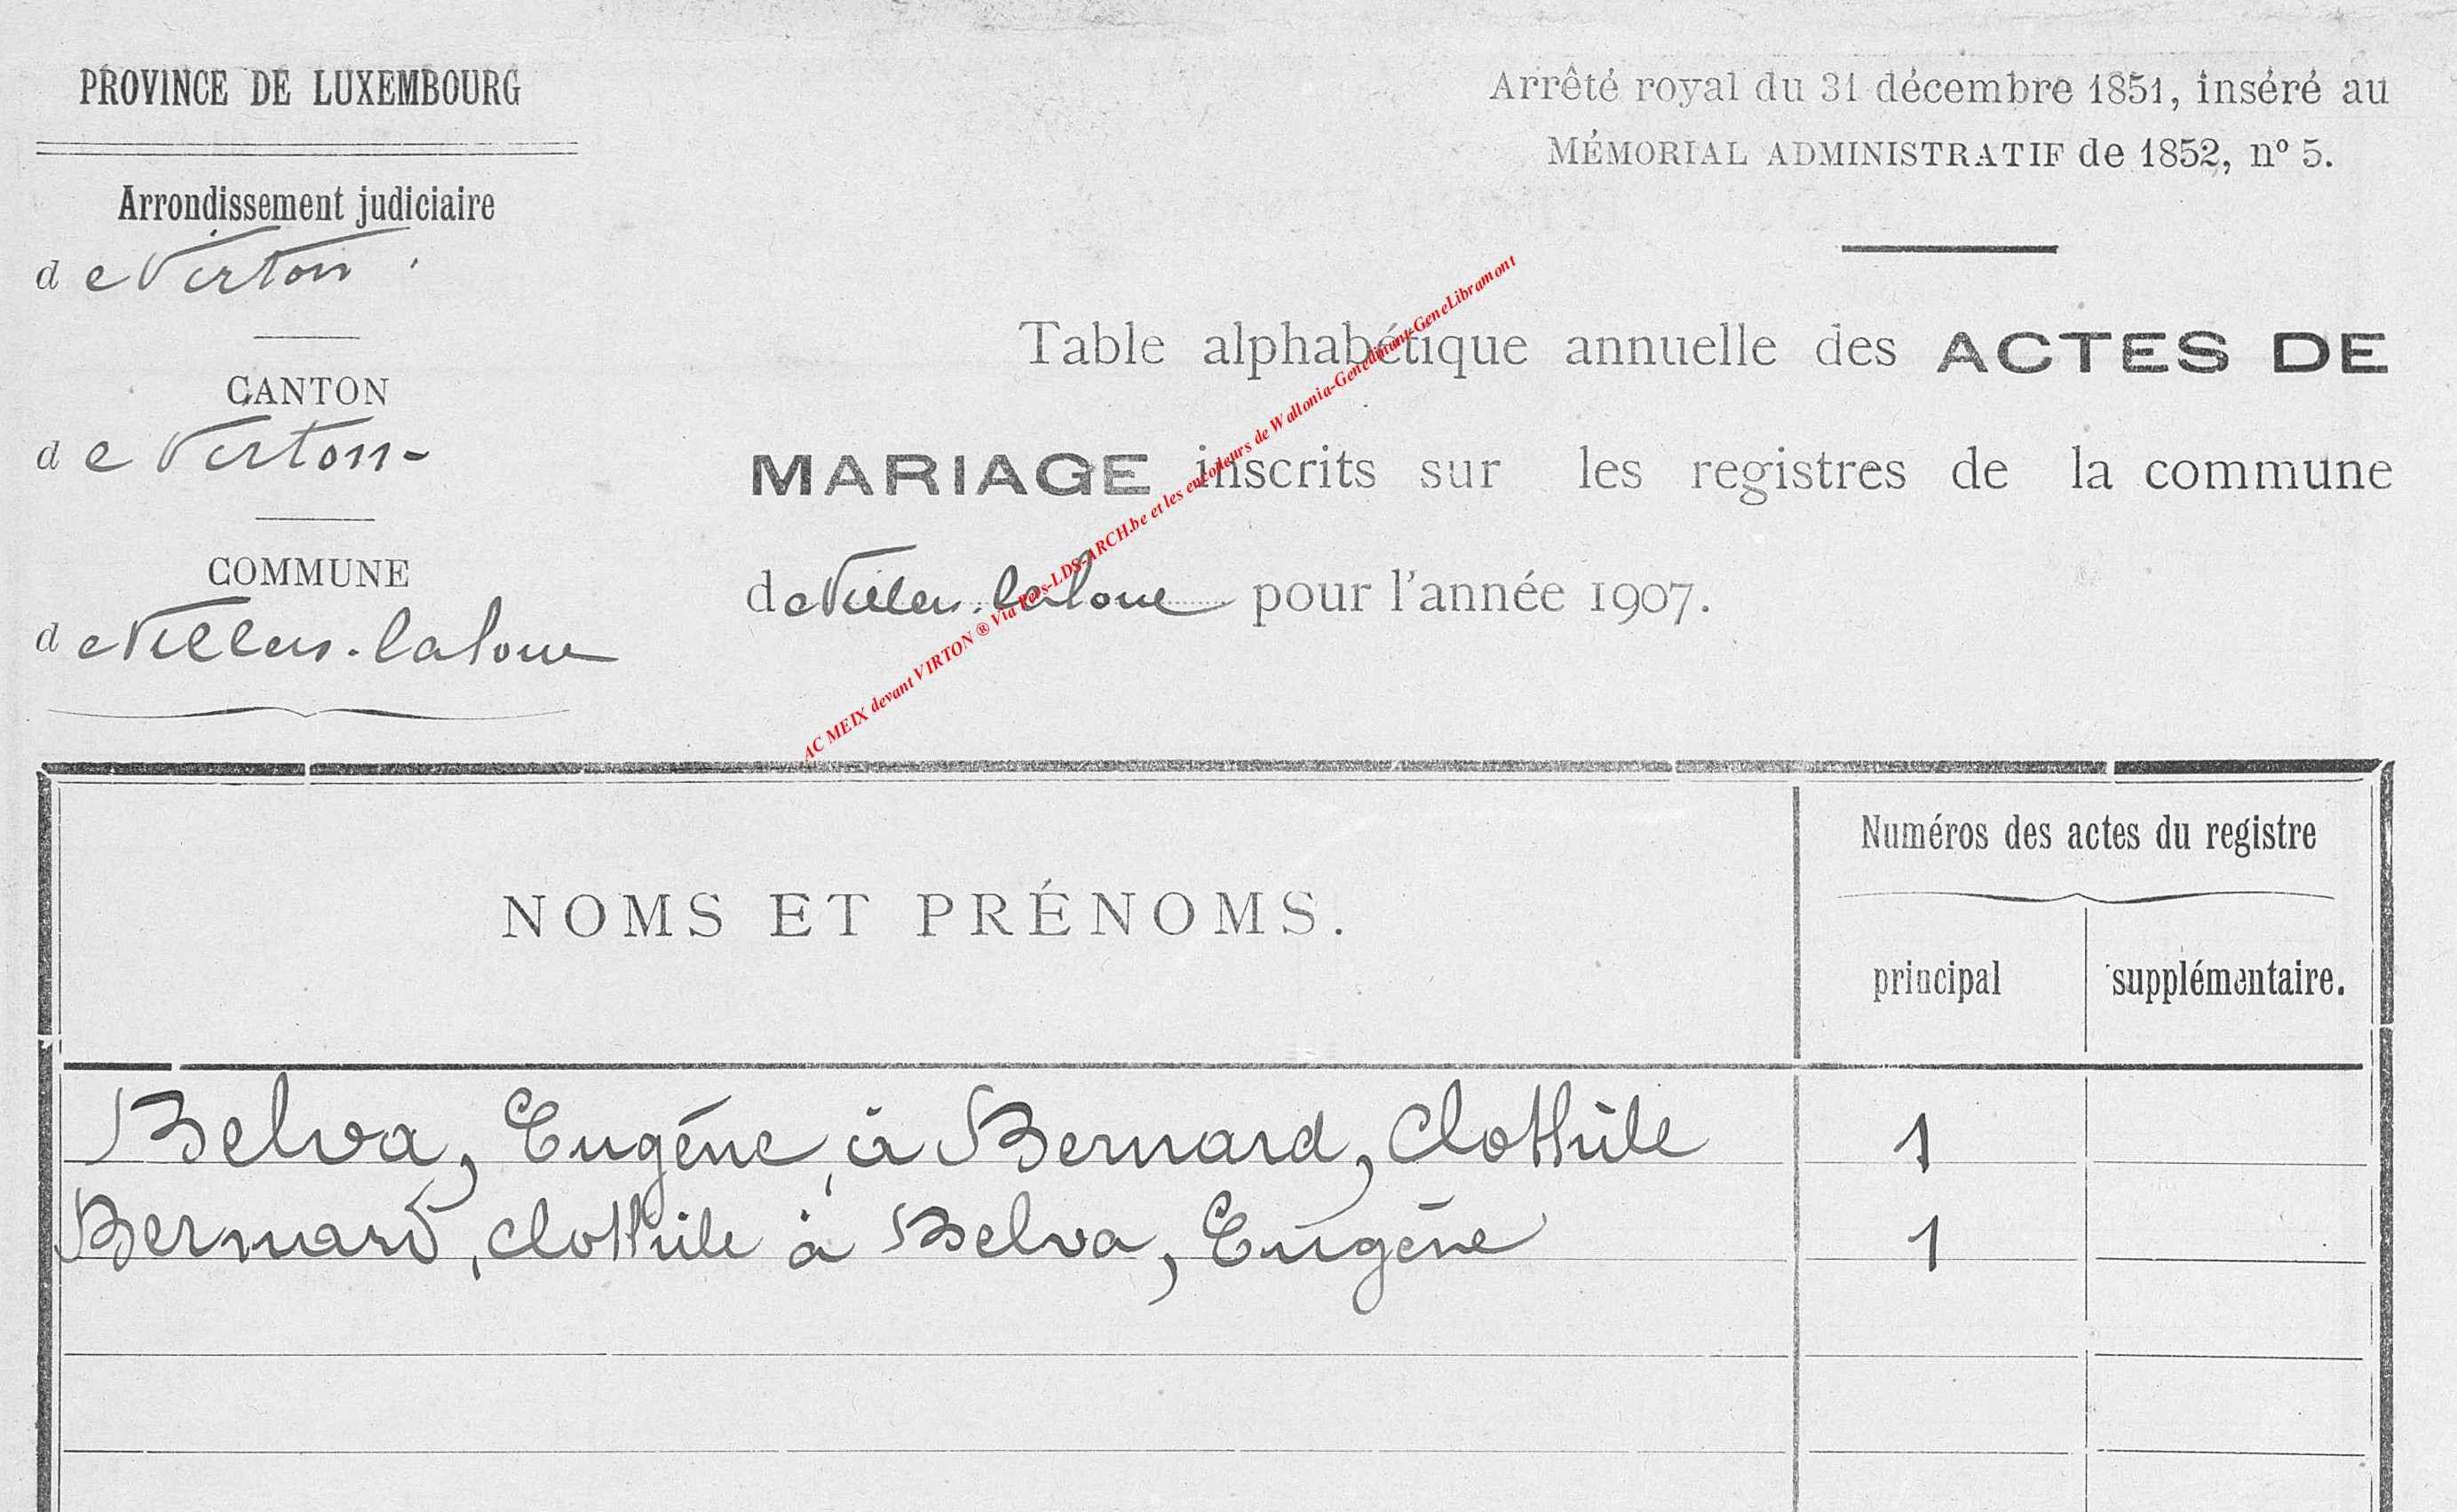 PROVINCE DE LUXEMBOURG
Arrondissement judiciaire
de Virton
CANTON
de Virton-
COMMUNE
de Villers-laloue
Arrêté royal du 31 décembre 1851, inséré au
MÉMORIAL ADMINISTRATIF de 1852, nº 5.
Table alphabétique annuelle des ACTES DE
MARIAGE inscrits sur les registres de la commune
de Villers-laloue pour l'année 1907.
AC MEIX devant VIRTON ® Via Pers-LDS-ARCH.be et les encodeurs de Wallonia-Genedinant-GeneLibramont
NOMS ET PRÉNOMS.
Numéros des actes du registre
principal
supplémentaire.
Belva, Eugène à Bernard, Clothile 1
Bernard, Clothile à Belva, Eugène 1